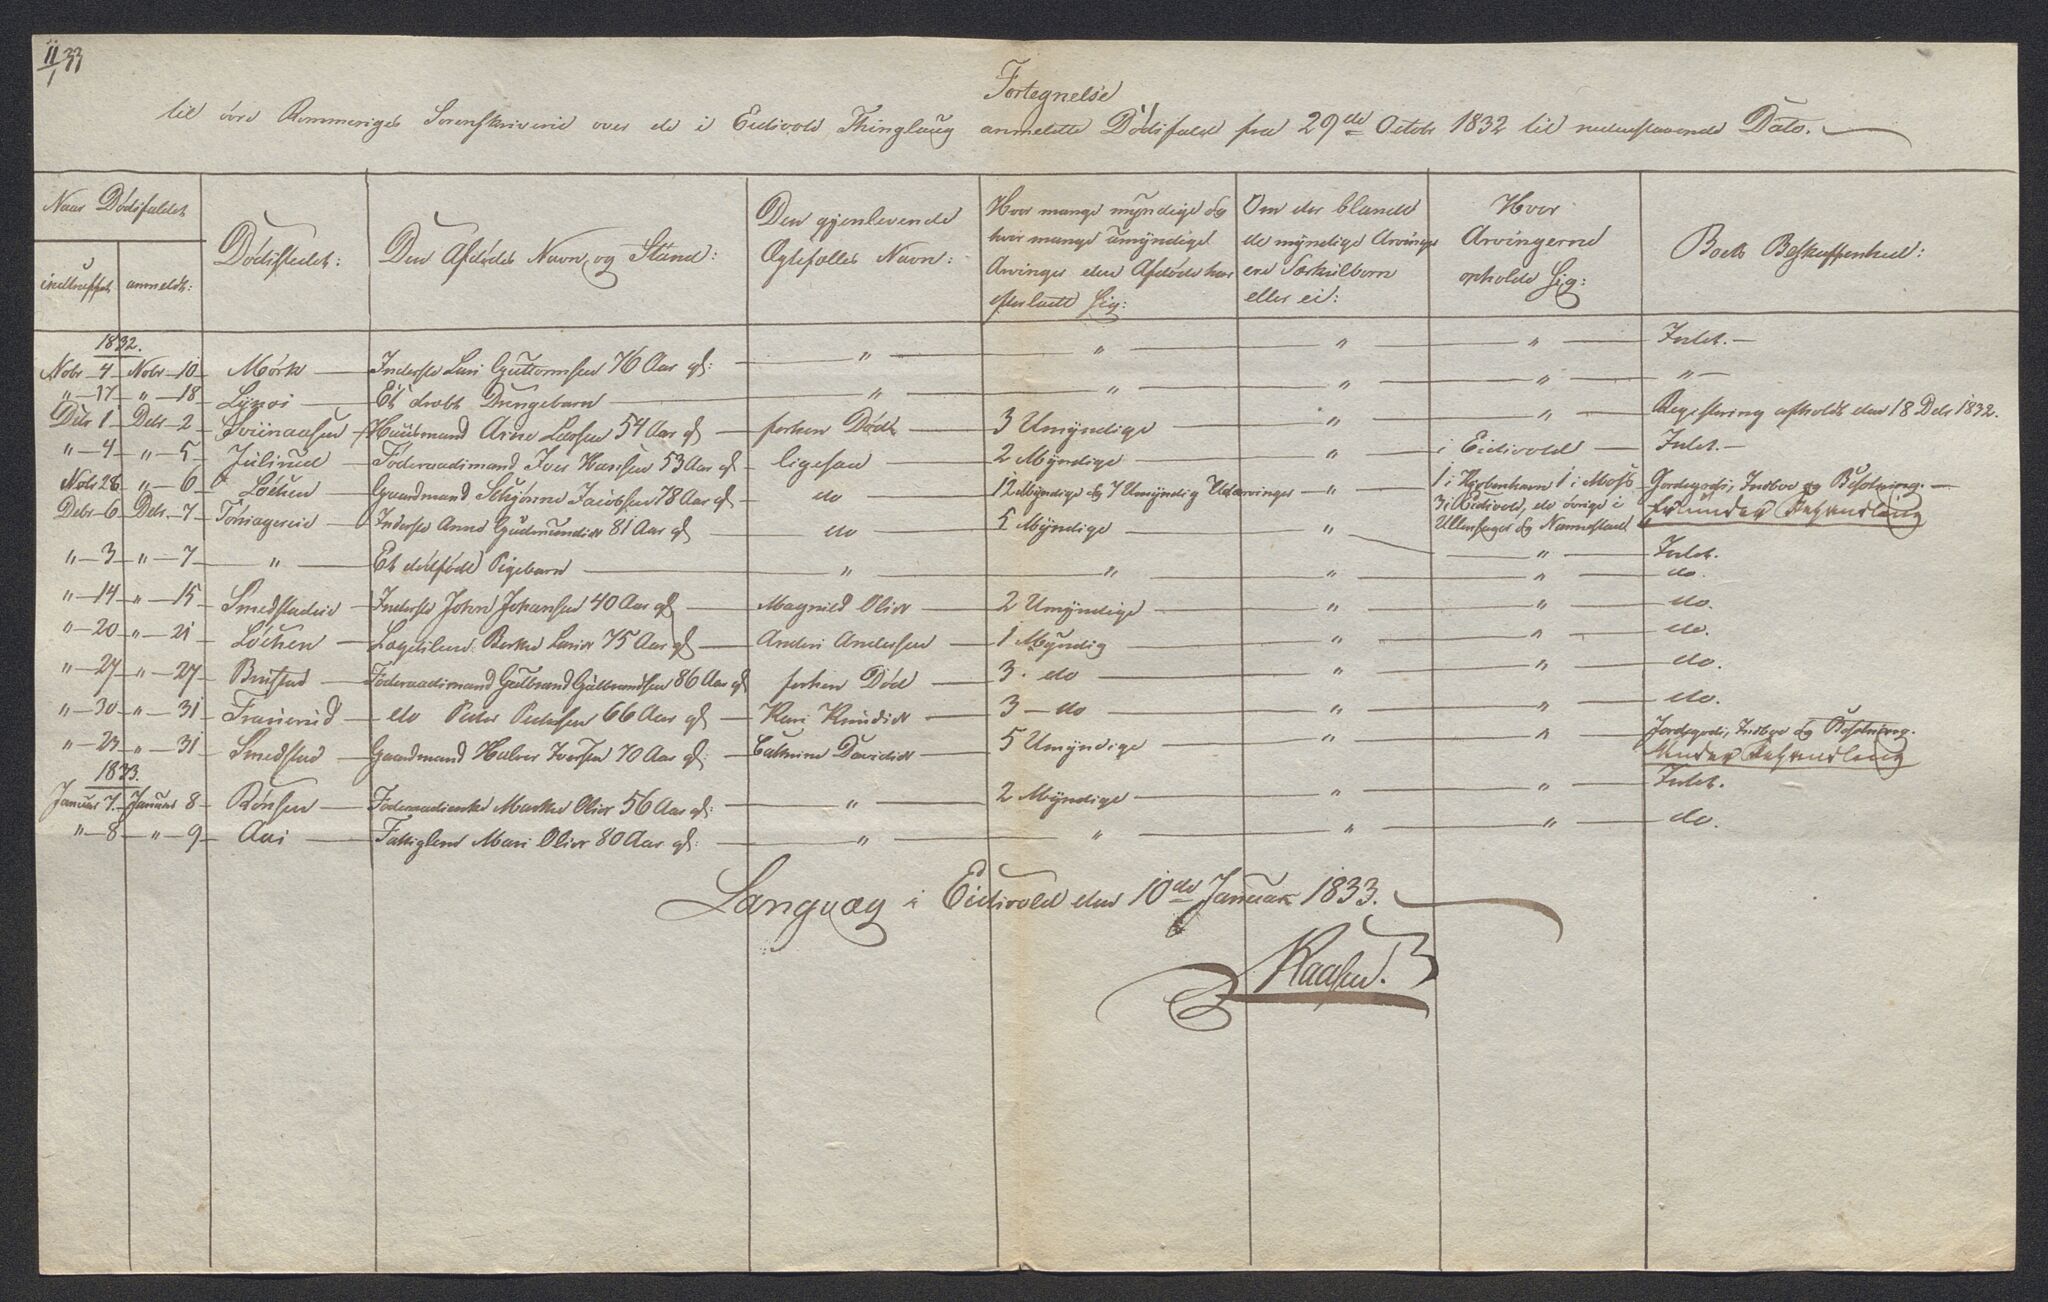 11/1 33
Fortegnelse
til övre Rommeriges Sorenskriverie over de i Eidsvold Thinglaug anmeldte Dödsfald fra 29de Octobr 1832 til nedenstaaende Dato.
Naar Dödsfaldet
indtruffet
anmeldt:
Dödsstedet:
Den Afdödes Navn og Stand:
Den gjenlevende
Ægtefælles Navn:
Hvor mange myndige og
hvor mange umyndige
Arvinger den Afdöde har
efterladt sig:
Om der blandt
de myndige Arvinger
ere Særkulborn
eller ei:
Hvor
Arvingerne
opholde sig:
Boets Beskaffenhed:
1832.
Nobr 4 Nobr 10 Mörk Inderste Lars Guttormsen 76 Aar gl: " " " " Intet.
" 17 " 18 Et dræbt Drengebarn " " " " "
Debr 1 Debr 2 Huusmand Arne Larsen 54 Aar gl forhen Död 3 Umyndige " " Registrering afholdt den 18 Debr 1832.
" 4 " 5 Julsrud Föderaadsmand Iver Hansen 53 Aar gl ligesaa 2 Myndige " i Eidsvold Intet.
Nobr 28 " 6 Löchen Gaardmand Jacobsen 78 Aar gl do 12 Myndige og 7 Umyndig Udarvinger " 1 i Kjöbenhavn 1 i Moss Jordegods, Indboe og Besætning.
3 i Eidsvold, de övrige i
Ullensager og Nannestad
Er under Behandling
Debr 6 Debr. 7 Inderste Anne Gudmundsdr 81 Aar gl do 5 Myndige " " Intet.
" 3 " 7 " Et dödfödt Pigebarn " " " " do.
" 14 " 15 Smedstadeie Inderste John Johansen 40 Aar gl Magnild Olsdr 2 Umyndige " " do.
" 20 " 21 Löchen Berthe Larsdr 75 Aar gl Anders Andersen 1 Myndig " " do.
" 27 " 27 Brustad Föderaadsmand Gulbrand Gulbrandsen 86 Aar gl forhen Död 3. do " " do.
" 30 " 31 do Peder Pedersen 66 Aar gl Kari Knudsdr 3 do " " do.
" 23 " 31 Smedstad Gaardmand Halvor Iversen 70 Aar gl. Cathrine Davidsdr 5 Umyndige " " Jordegods, Indboe og Besætning.
Under Behandling
1833.
Januar 7. Januar 8 Rönsen Föderaadsenke Marthe Olsdr 56 Aar gl: " 2 Myndige " " Intet.
" 8 " 9 Aas Fattiglem Mari Olsdr 80 Aar gl: " " " " do.
Langvæg i Eidsvold den 10de Januar 1833.
Kaasen.